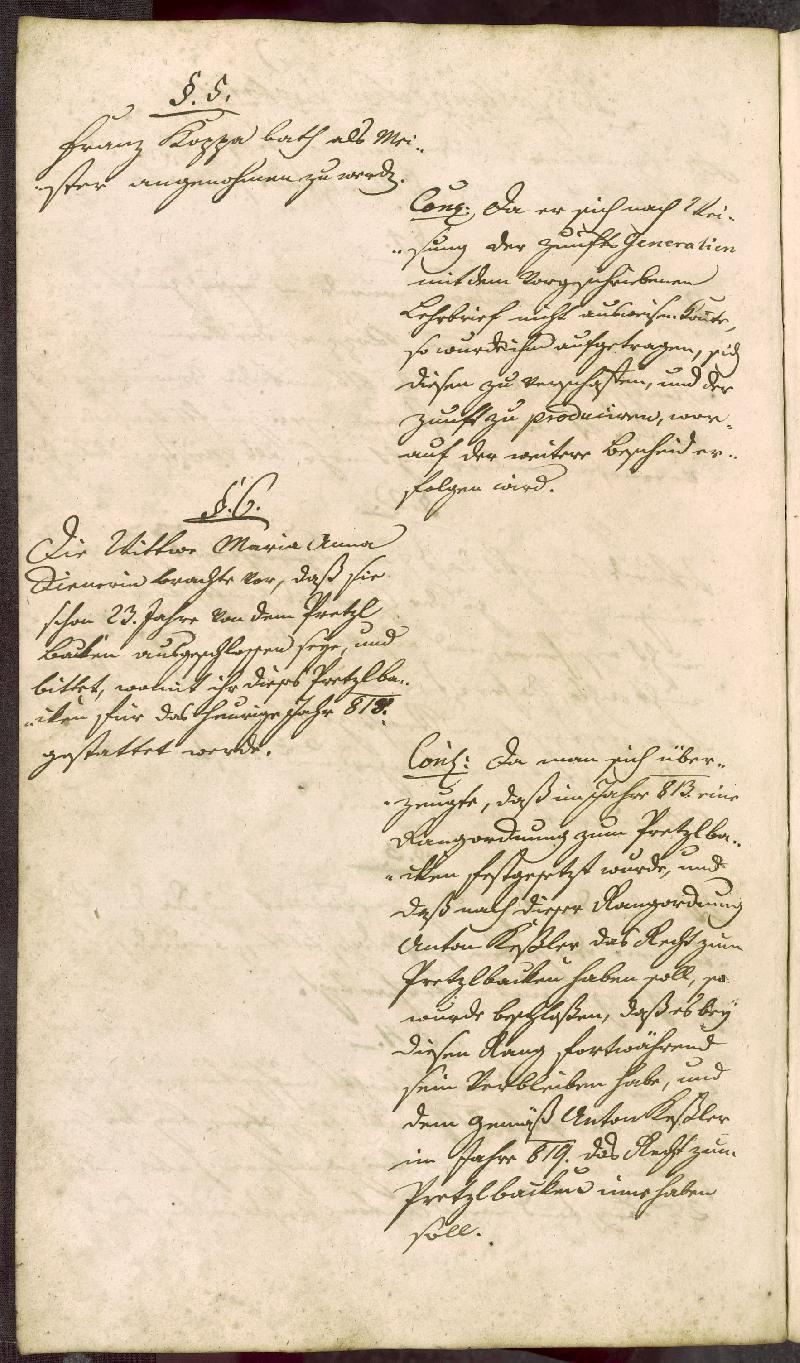 §. 5.
Franz Koppa bath als Mei„
„ster angenohmen zu werdn.
Concl: Da er sich nach Wei„
„sung der Zunfts Generalien
mit dem Vorgeschriebenen
Lehrbrief nicht ausweisen konte,
so wurde ihm aufgetragen, sich
diesen zu verschaffen, und der
Zunft zu produciren, wor„
auf der weitere Bescheid er„
folgen wird.
§. 6.
Die Wittwe Maria Anna
Dienerin brachte vor, daß sie
schon 23. Jahre von dem Pretzl
backen ausgeschlossen seye, und
bittet, womit ihr dieses Pretzlba„
„cken für das heurige Jahr 819.
gestattet werde.
Concl: Da man sich über„
„zeugte, daß im Jahre 813. eine
Rangordnung zum Pretzlba„
„cken festgesetzt wurde, und
daß nach dieser Rangordnung
Anton Keßler das Recht zum
Pretzlbacken haben soll, so
wurde beschloßen, daß es bey
diesen Rang fortwährend
sein Verbleiben habe, und
dem gemäß Anton Keßler
im Jahre 819. das Recht zum
Pretzlbacken inne haben
soll.